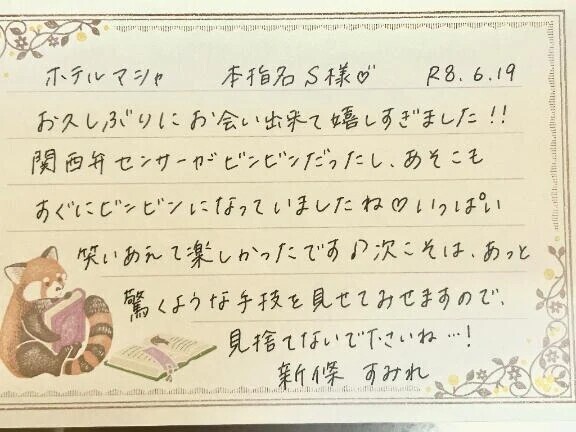 ホテルマシャ 本指名S様♡ R8.6.19
お久しぶりにお会い出来て嬉しすぎました!!
関西弁センサーがビンビンだったし、あそこも
すぐにビンビンになっていましたね♡いっぱい
笑いあえて楽しかったです♪次こそは、あっと
驚くような手技を見せてみせますので、
見捨てないで下さいね…!
新條 すみれ